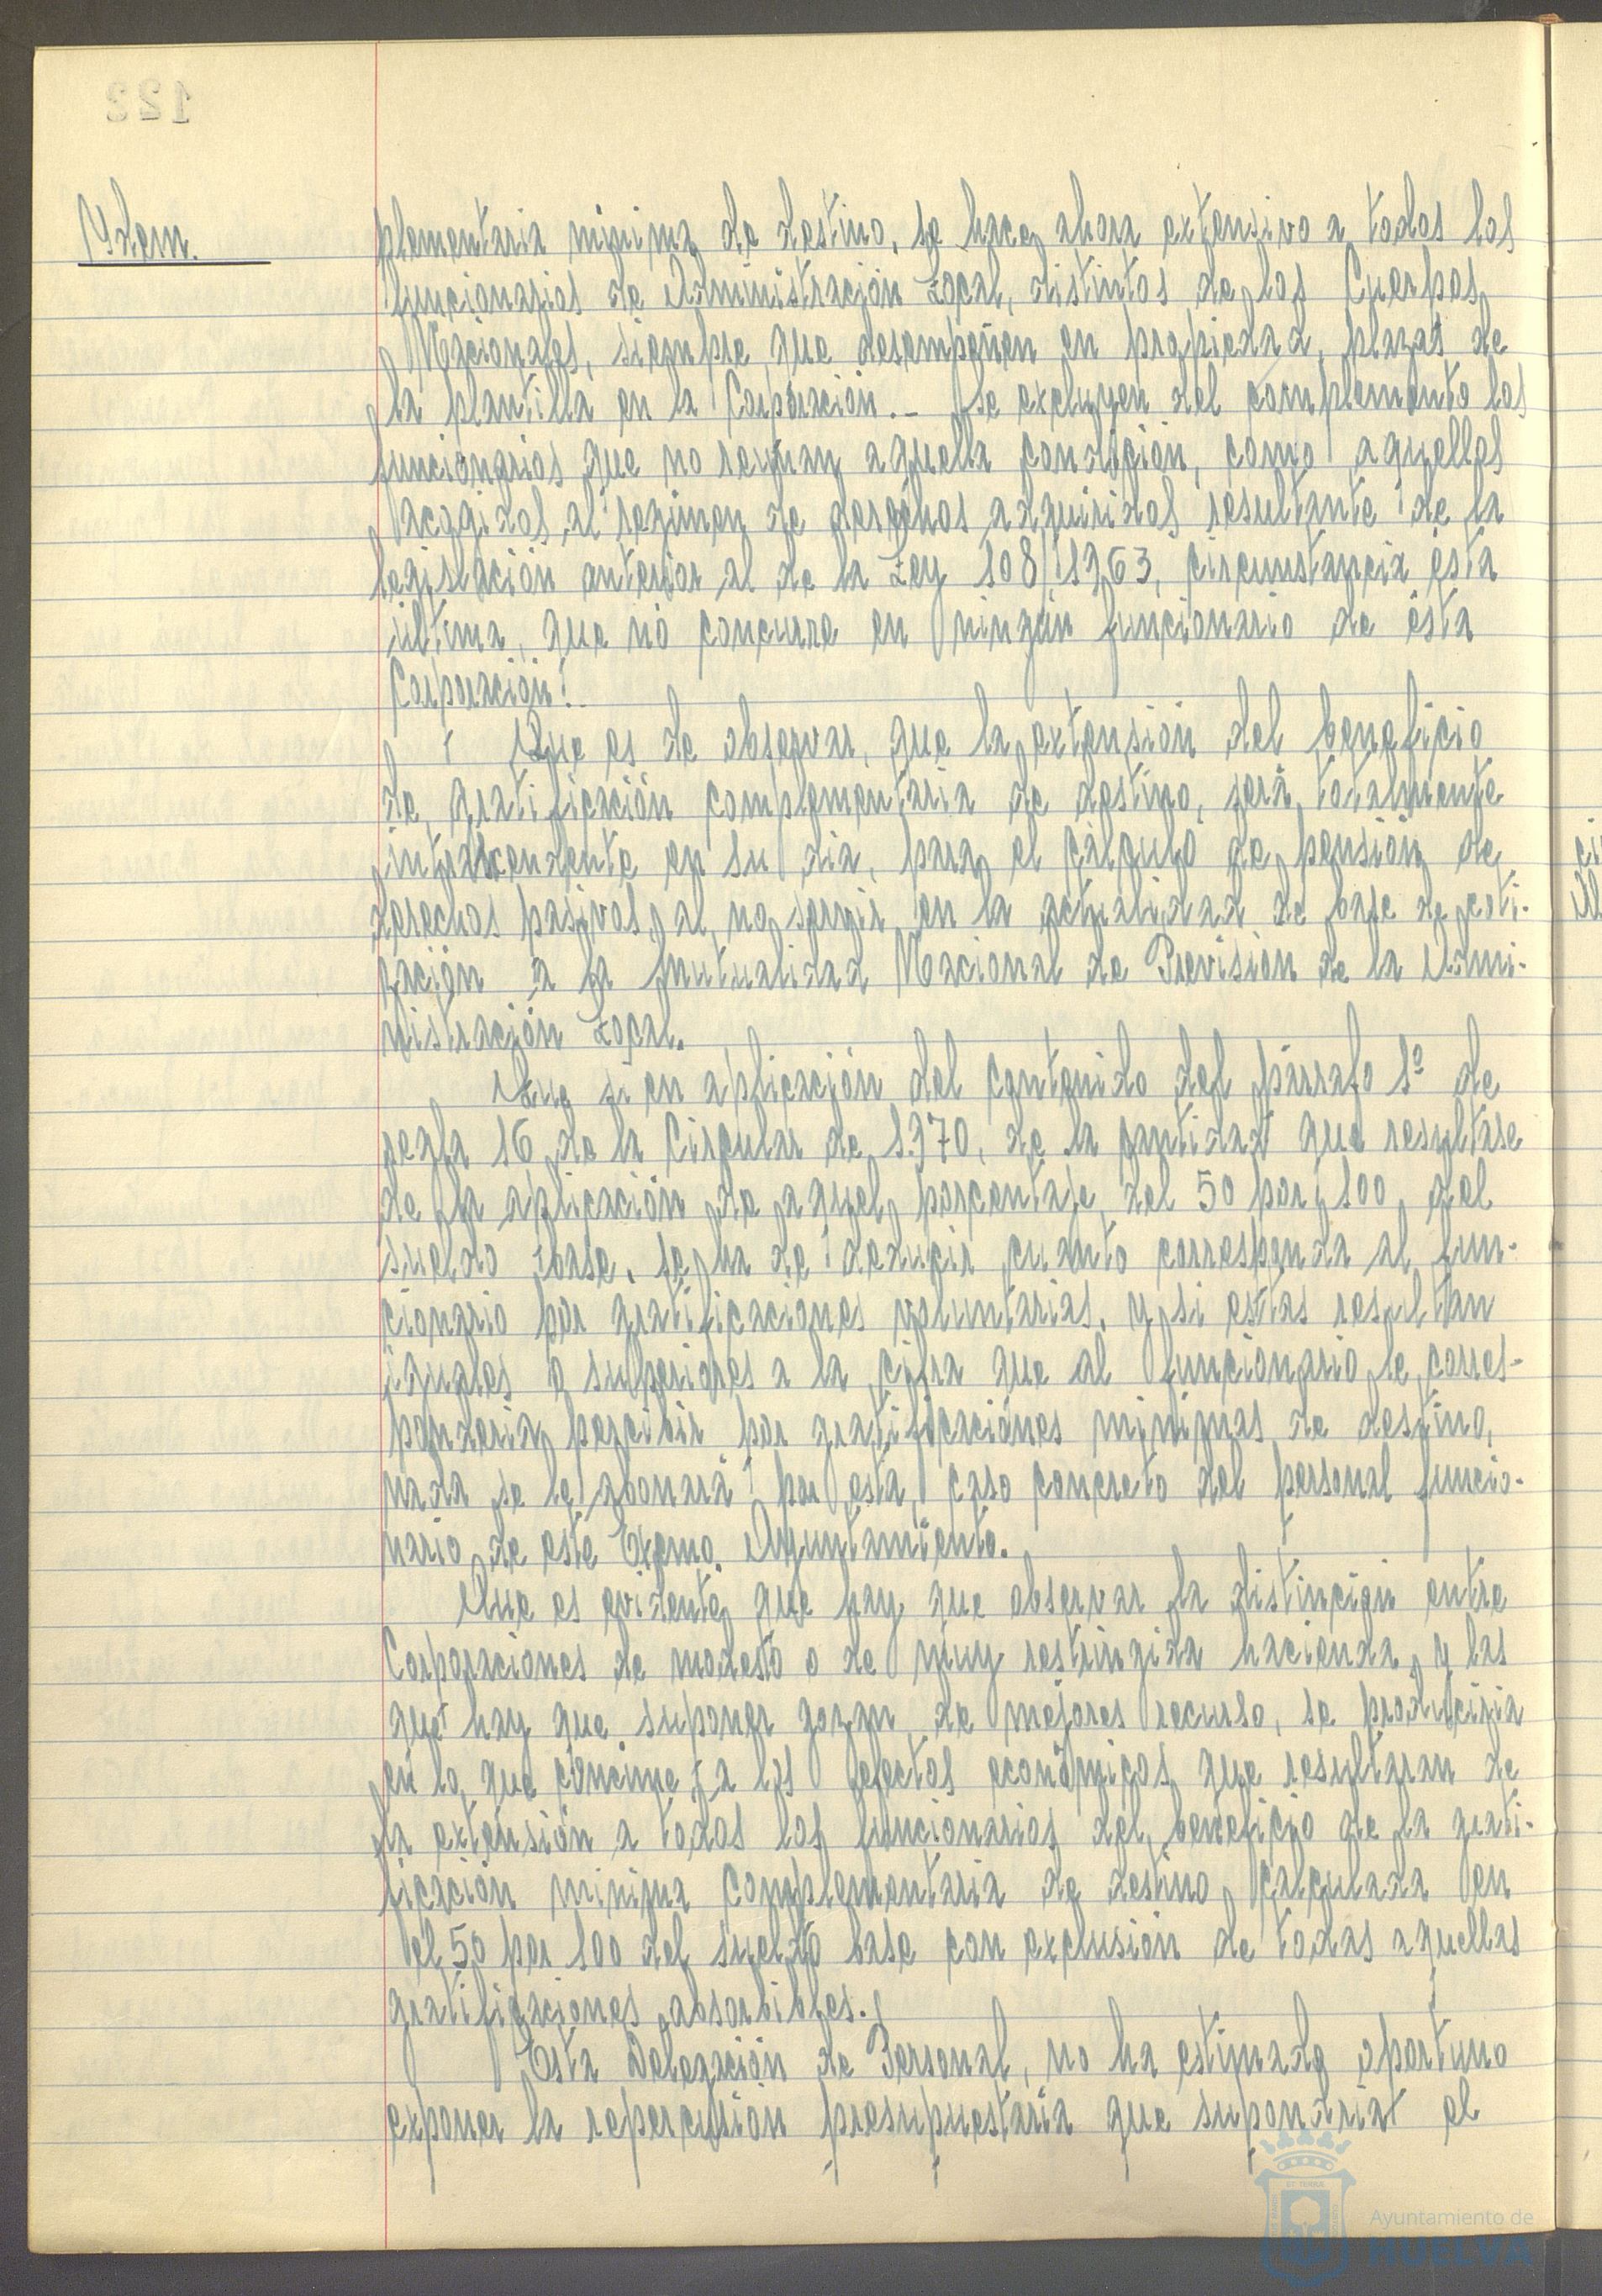 122
Ydem.
plementaria mínima de destino, se hace, ahora extensivo a todos los
funcionarios de Administración Local, distintos de los Cuerpos
Nacionales, siempre que desempeñen en propiedad, plazas de
la plantilla en la Corporación.- Se excluyen del complemento los
funcionarios que no reunan aquella condición, como aquellos
acogidos al régimen de derechos adquiridos resultante de la
legislación anterior al de la Ley 108/1963, circunstancia ésta
última, que no concurre en ningún funcionario de ésta
Corporación.
Que es de observar, que la extensión del beneficio
de gratificación complementaria de destino, será totalmente
intrascendente en su dia, para el cálculo de pensión de
derechos pasivos, al no servir en la actualidad de base de coti-
zación a la Mutualidad Nacional de Previsión de la Admi-
nistración Local.
Que si en aplicación del contenido del párrafo 1º de
regla 16 de la Circular de 1.970, de la cantidad que resultase
de la aplicación de aquel porcentaje del 50 por 100 del
sueldo base, se ha de deducir cuanto corresponda al fun-
cionario por gratificaciones voluntarias, y si estas resultan
iguales o superiores a la cifra que al funcionario le corres-
ponderia percibir por gratificaciónes minimas de destino,
nada se le abonará por ésta, caso concreto del personal funcio-
nario de este Excmo. Ayuntamiento.
Que es evidente que hay que observar la distinción entre
Corporaciones de modesto o de muy restringida hacienda, y las
que hay que suponer gozan de mejores recurso, se produciria
en lo que concirne a los efectos económicos que resultaran de
la extensión a todos los funcionarios del beneficio de la grati-
ficación minima complementaria de destino calculada en
el 50 por 100 del sueldo base con exclusión de todas aquellas
gratificaciones absorbibles.
Esta Delegación de Personal, no ha estimado oportuno
exponer la repercusión presupuestaria que supondria el
Ayuntamiento de
HUELVA